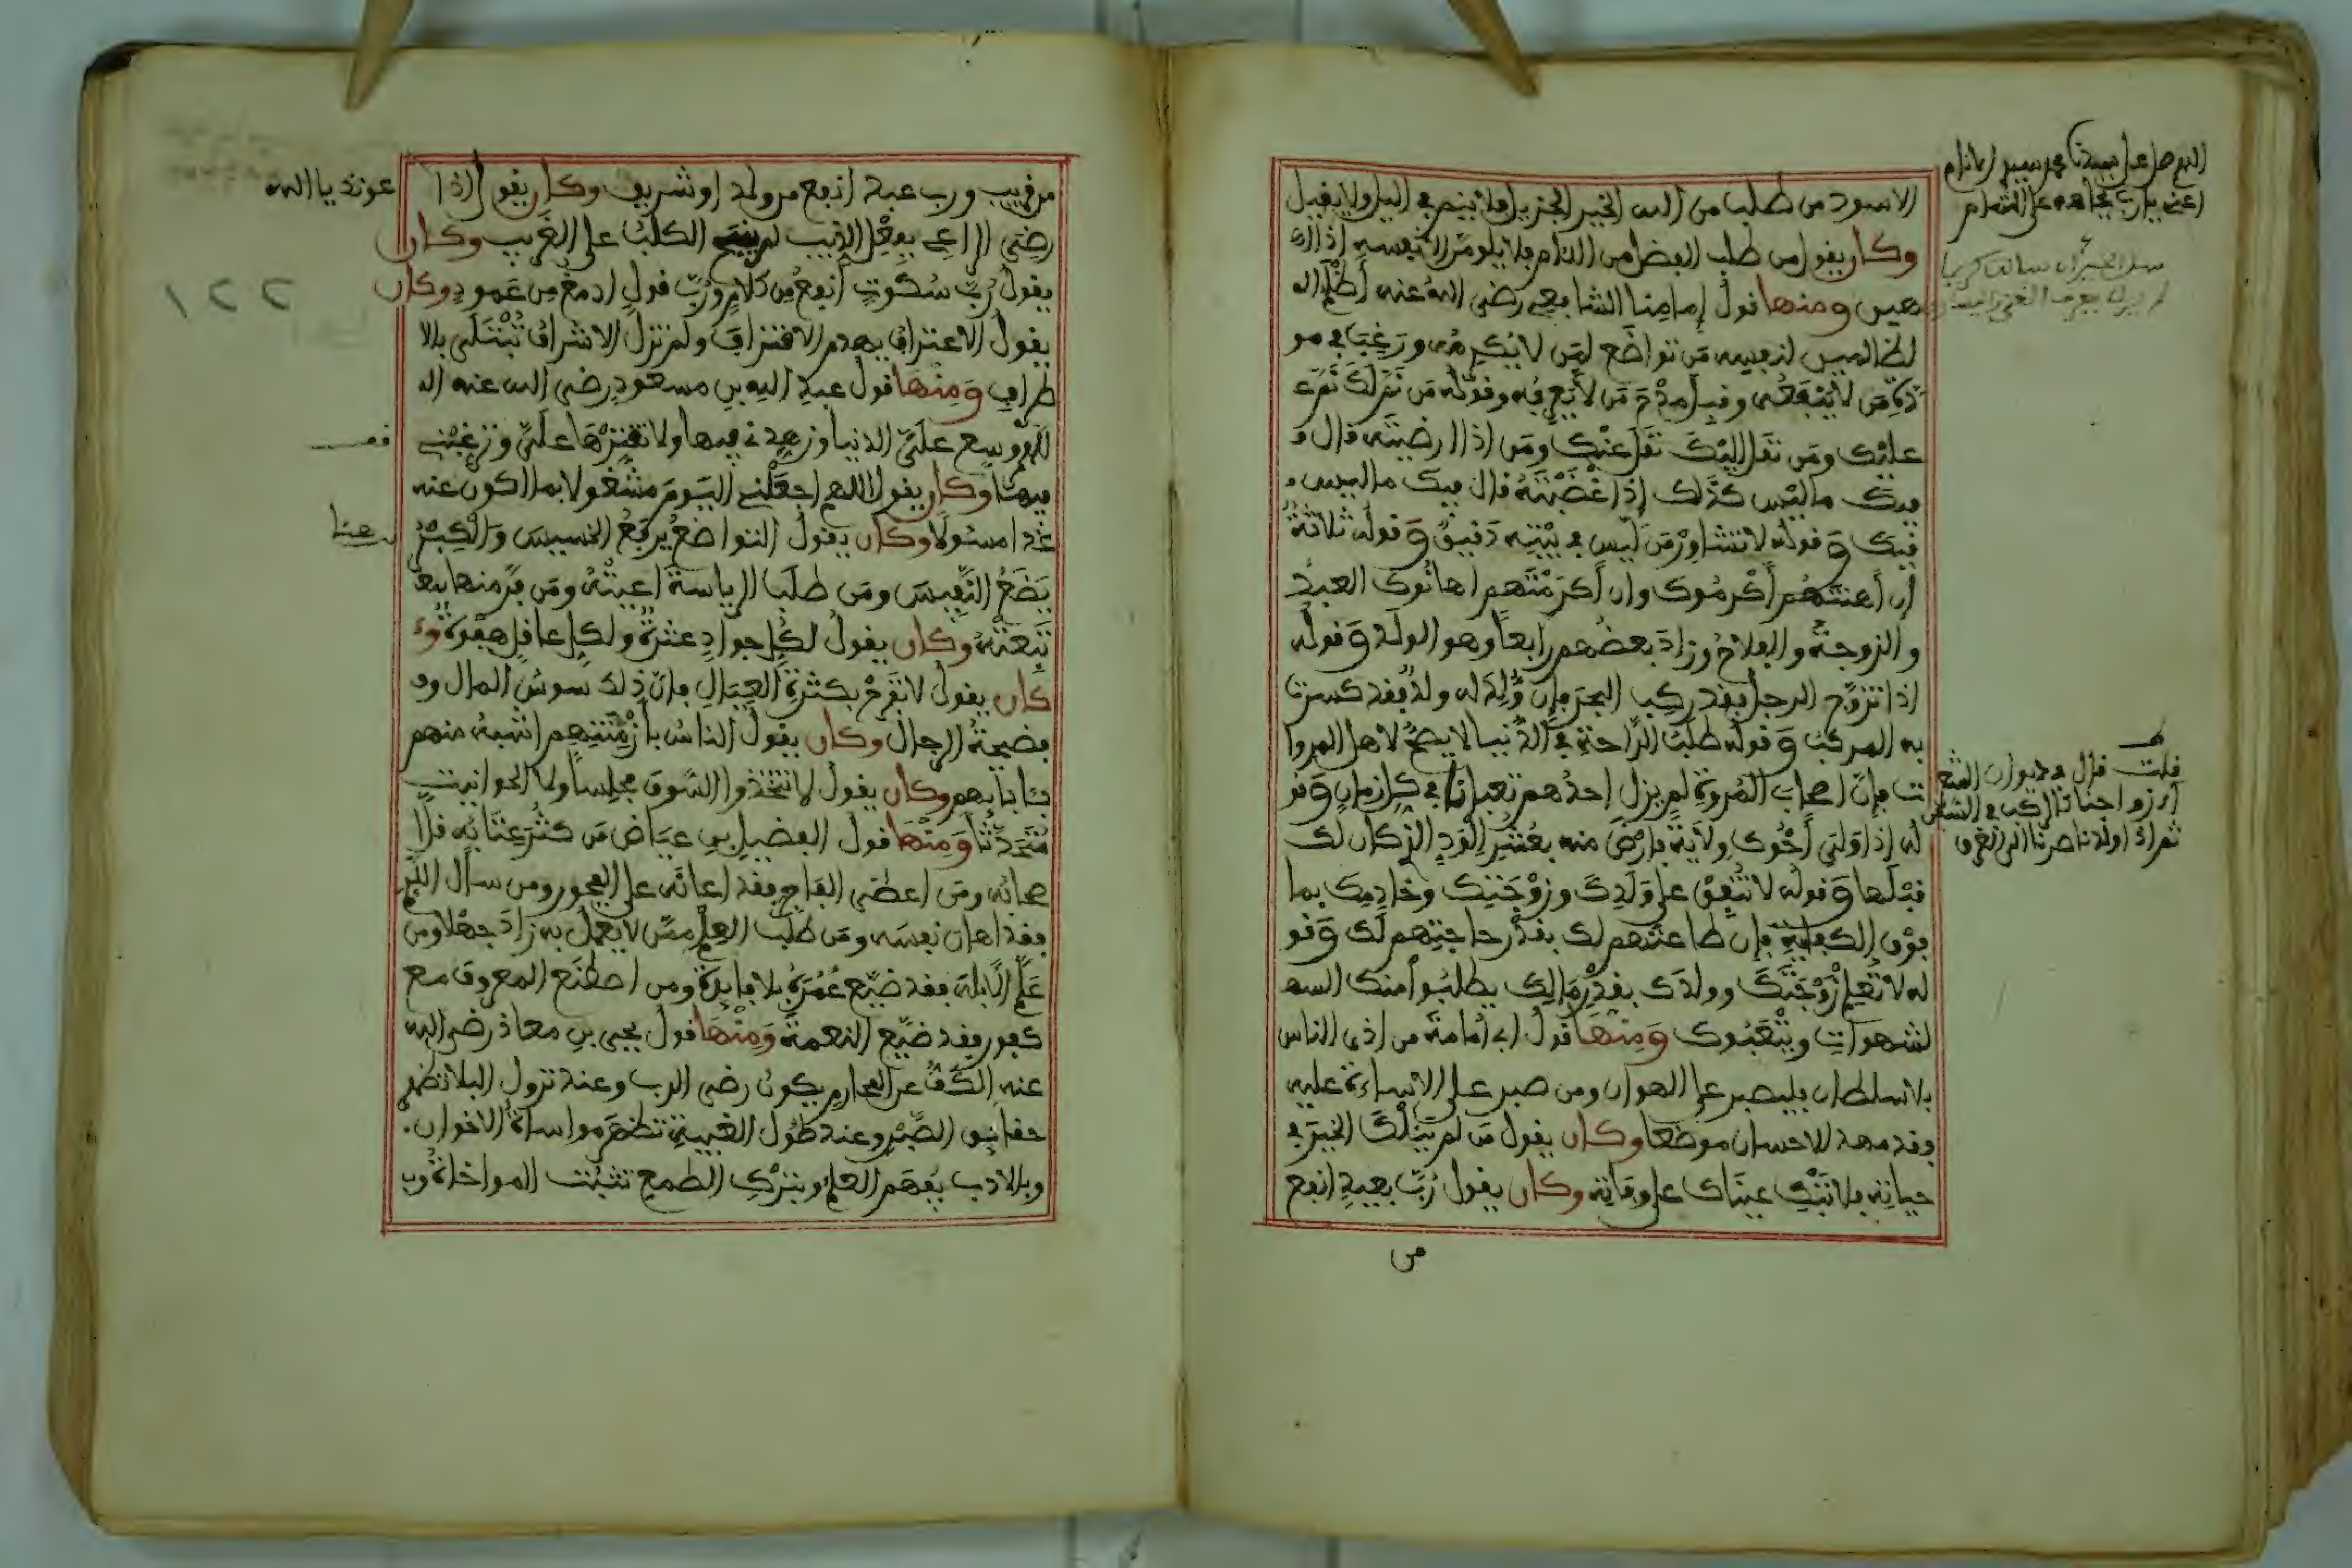 الاسود من طلب من الله الخير الجزيل فلا ينم في الليل ولا يقيل
وكان يقول من طلب الفضل من اللئام فلا يلومن الا نفسه اذا
هين ومنها قول إمامنا الشافعي رضي الله عنه أظلم ال
لظالمين لنفسه من تواضع لمن لا يكرمه ورغب في مو
دة من لا ينفعه وقبل مدح من لا يعرفه وقوله من نم لك نم
عليك ومن نقل اليك نقل عنك ومن اذا ارضيته قال
فيك ما ليس كذلك إذا غضبته قال فيك ما ليس
فيك وقوله لا تشاور من ليس في بيته دقيق وقوله ثلاثة
إن أهنتهم أكرموك وإن أكرمتهم اهانوك العبد
والزوجة والفلاح وزاد بعضهم رابعا وهو الولد وقوله
اذا تزوج الرجل فقد ركب البحر فإن ولد له ولد فقد كسرت
به المركب وقوله طلب الراحة في الدنيا لا يصح لاهل المروا
ت فإن اصحاب المروة لم يزل احدهم تعبانا في كل زمان وقو
له إذا ولي أخوك ولاية فارض منه بعشير الود الذي كان لك
قبلها وقوله لا تنفق على ولدك وزوجتك وخادمك بما
فوق الكفاية فإن طاعتهم لك بقدر حاجتهم لك وقو
له لا تعلم زوجتك وولدك بقدر مالك يطلبوا منك
الشهوات ويتعبوك ومنها قول ابي أمامة من اذى الناس
بلا سلطان فليصبر على الهوان ومن صبر على الاساءة عليه
فقد مهد للاحسان موضعا وكان يقول من لم ينلك الخير في
حياته فلا تبك عيناك على وفاته وكان يقول رب بعيد انفع
من
اللهم صل على سيدنا محمد
قلت قال في ديوان
من قريب ورب عبد انفع من ولد او شريف وكان يقول إذا
رضي الراعي بفعل الذيب لم ينبح الكلب على الغريب وكان
يقول رب سكوت أنفع من كلام ورب قول ادمغ من عمود وكان
يقول الاعتراف يهدم الاقتراف ولم تزل الاشراف تبتلى بالا
طراف ومنها قول عبد الله بن مسعود رضي الله عنه ال
لهم وسع علي الدنيا وزهدني فيها ولا تقترها علي وترغبني
فيها وكان يقول اللهم اجعلني اليوم مشغولا بما اكون عنه
غدا مسئولا وكان يقول التواضع يرفع الخسيس والكبر
يضع النفيس ومن طلب الرياسة اعيته ومن فر منها
تبعته وكان يقول لكل جواد عثرة ولكل عاقل هفوة و
كان يقول لا تفرح بكثرة العيال فإن ذلك سوس المال و
فضيحة الرجال وكان يقول الناس بأزمنتهم اشبه منهم
بئابايهم وكان يقول لا تتخذوا السوق مجلسا ولا الحوانيت
متحدثا ومنها قول الفضيل بن عياض من كثر عتابه قل
صحابه ومن اعطى الفاجر فقد اعانه على الفجور ومن سأل اللئيم
فقد اهان نفسه ومن طلب العلم ممن لا يعمل به زاد جهلا ومن
علم البله فقد ضيع عمره بلا فايدة ومن اصطنع المعروف مع
كفور فقد ضيع النعمة ومنها قول يحيى بن معاذ رضي الله
عنه الكف عن المحارم يكون رضى الرب وعند نزول البلا تظهر
حقايق الصبر وعند طول الغيبة تظهر مواساة الاخوان.
وبالادب يفهم العلم وبترك الطمع تثبت المواخاة
عونك يا الله
هنا
٢٢١